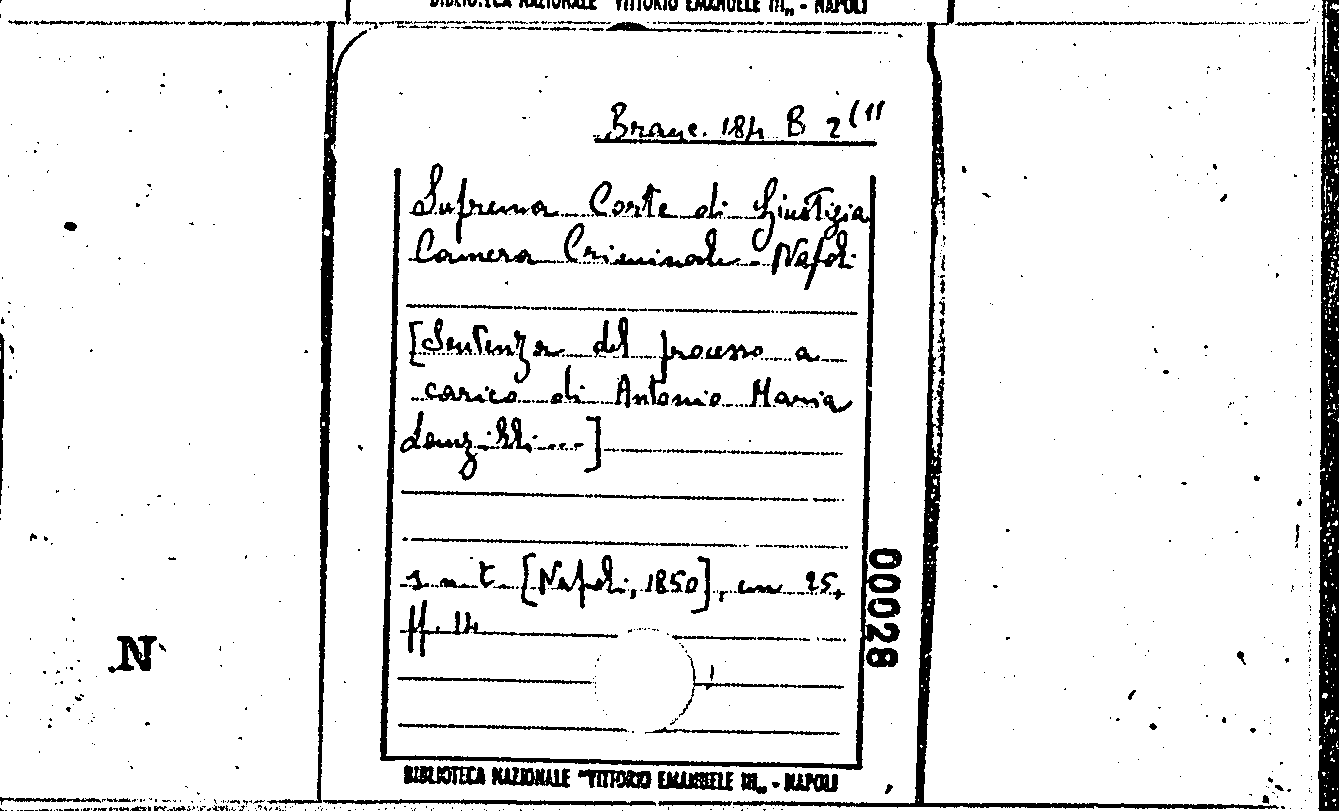 BIBLIOTECA NAZIONALE "VITTORIO EMANUELE III„ - NAPOLI
Branc. 184 B 2(11
Suprema Corte di Giustizia
Camera Criminale - Napoli
[Sentenza del processo a
carico di Antonio Maria
Lanzilli...]
s n t. [Napoli, 1850], cm 25,
ff. 14
00028
N
BIBLIOTECA NAZIONALE "VITTORIO EMANUELE III„ - NAPOLI